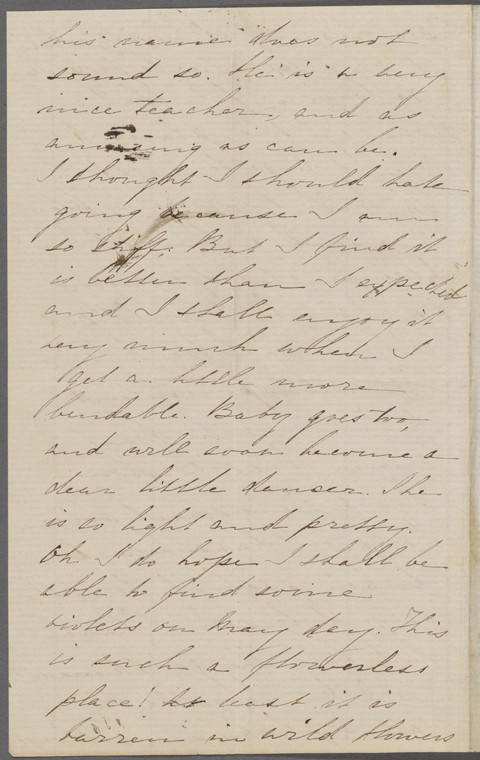 his name does not
sound so. He is a very
nice teacher, and as
amusing as can be.
I thought I should hate
going because I am
so stiff. But I find it
is better than I expected
and I shall enjoy it
very much when I
get a little more
bendable. Baby goes too,
and will soon become a
dear little dancer. She
is so light and pretty.
Oh I do hope I shall be
able to find some
violets on May day. This
is such a flowerless
place! At least it is
barren in wild flowers